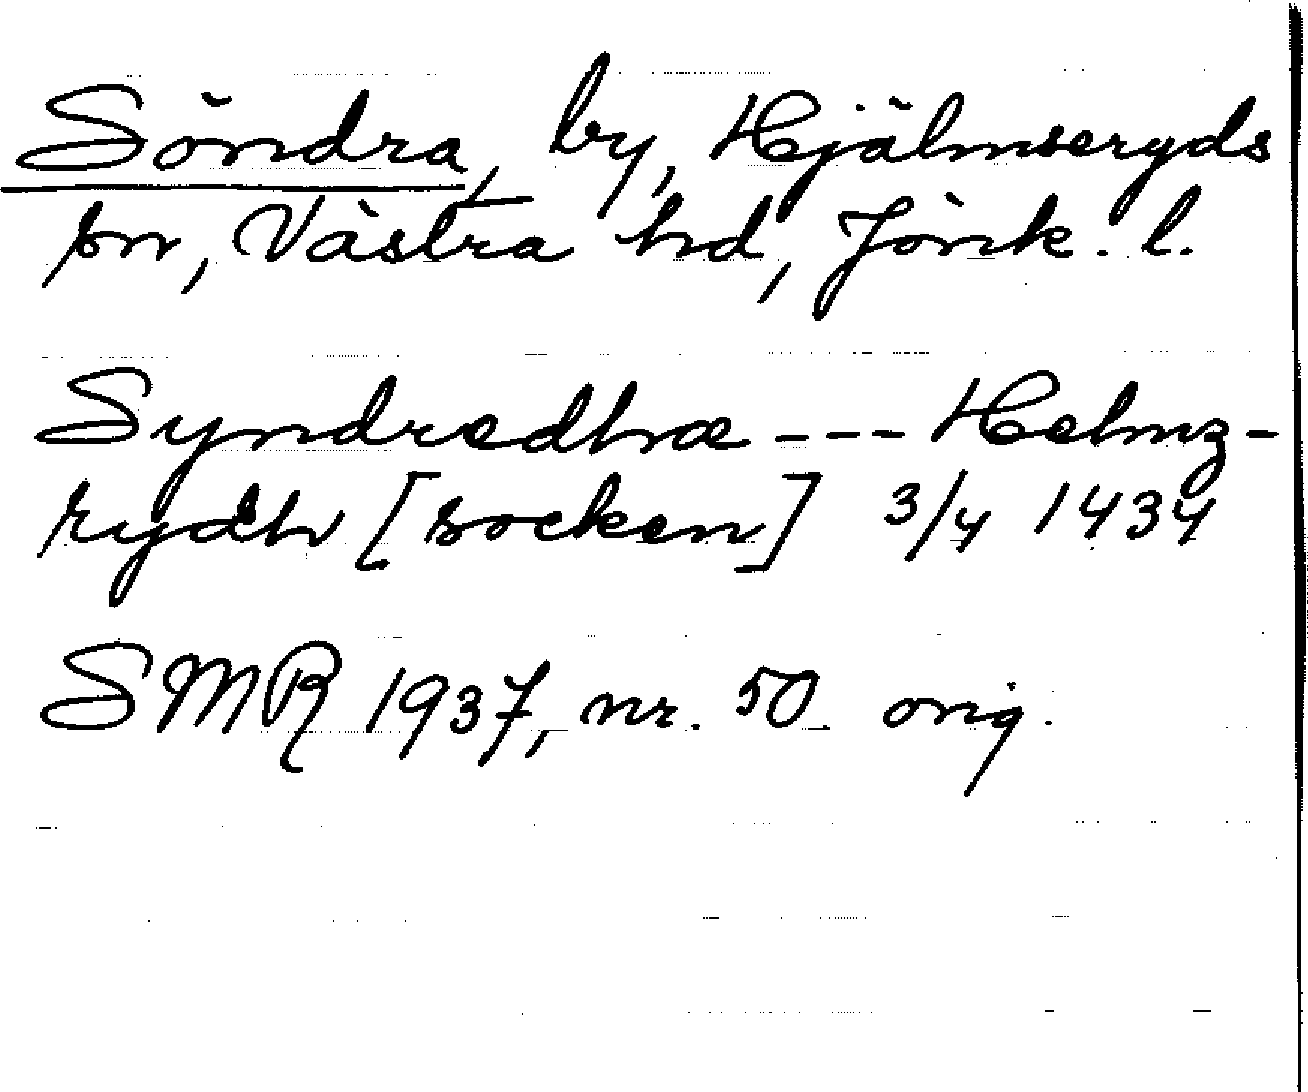 Söndra, by, Hjälmseryds
sn, Västra hd, Jönk. l.
Syndredhræ --- Helmz-
rydh [socken] 3/4 1434
SMR 1937, nr. 50 orig.